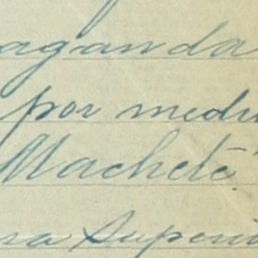 aganda
por medi
Machete
sa Superi